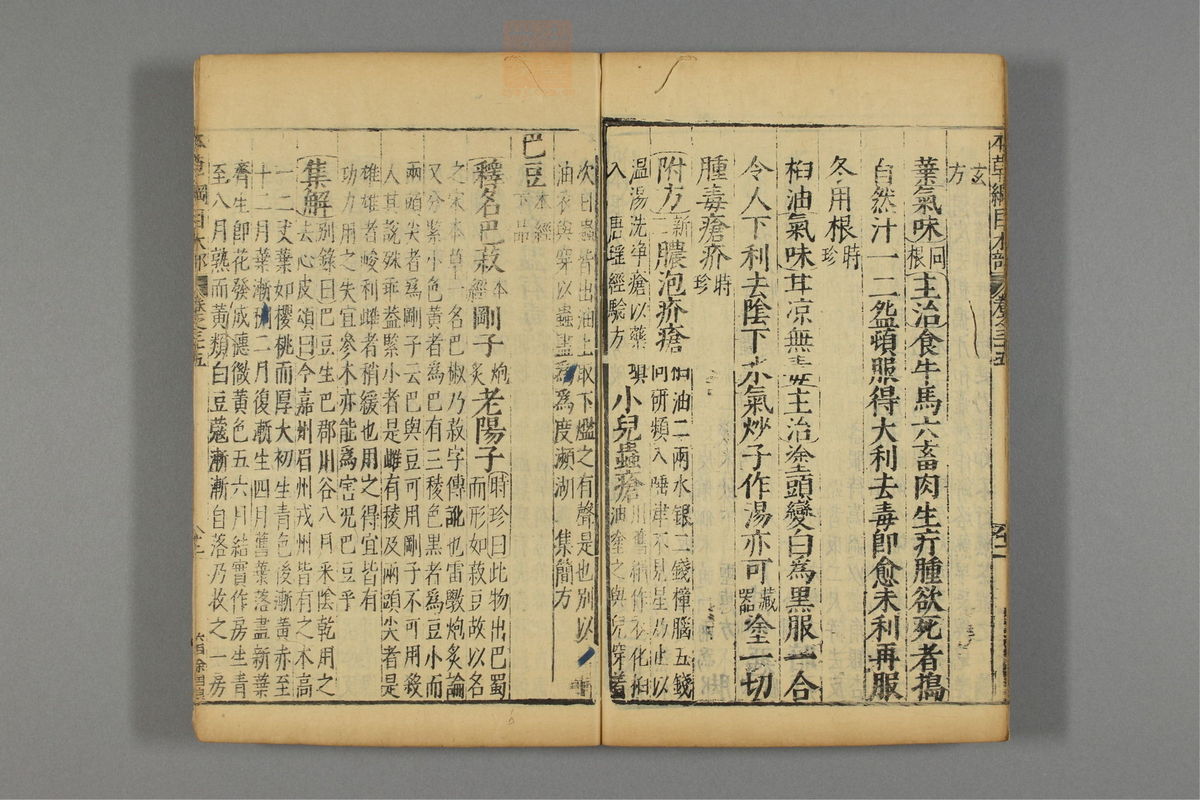 本草綱目木部 卷之三十五
玄
方
葉氣味同根主治食牛馬六畜肉生疔腫欲死者搗
自然汁一二盌頓服得大利去毒卽愈未利再服
冬用根時珍
桕油氣味甘凉無毒主治塗頭變白爲黑服一合
令人下利去陰下水氣炒子作湯亦可藏器塗一切
腫毒瘡疥時珍
附方新二膿泡疥瘡桕油二兩水銀二錢樟腦五錢
同研頻入唾津不見星乃止以
溫湯洗淨瘡以藥
填入唐瑶經驗方小兒蟲瘡用舊絹作衣化桕
油塗之與兒穿着
次日蟲皆出油上取下爁之有聲是也別以
油衣與穿以蟲盡爲度瀕湖集簡方
巴豆本經下品
釋名巴菽本經剛子炮炙老陽子時珍曰此物出巴蜀
而形如菽豆故以名
之宋本草一名巴椒乃菽字傳訛也雷斆炮炙論
又分緊小色黃者爲巴有三稜色黑者爲豆小而
兩頭尖者爲剛子云巴與豆可用剛子不可用殺
人其說殊乖葢緊小者是雌有稜及兩頭尖者是
雄雄者峻利雌者稍緩也用之得宜皆有
功力用之失宜參木亦能爲害况巴豆乎
集解別錄曰巴豆生巴郡川谷八月采陰乾用之
去心皮頌曰今嘉州眉州戎州皆有之木高
一二丈葉如櫻桃而厚大初生青色後漸黃赤至
十二月葉漸凋二月復漸生四月舊葉落盡新葉
齊生卽花發成穗微黃色五六月結實作房生青
至八月熟而黃類白豆蔻漸漸自落乃收之一房
本草綱目木部 卷之三十五